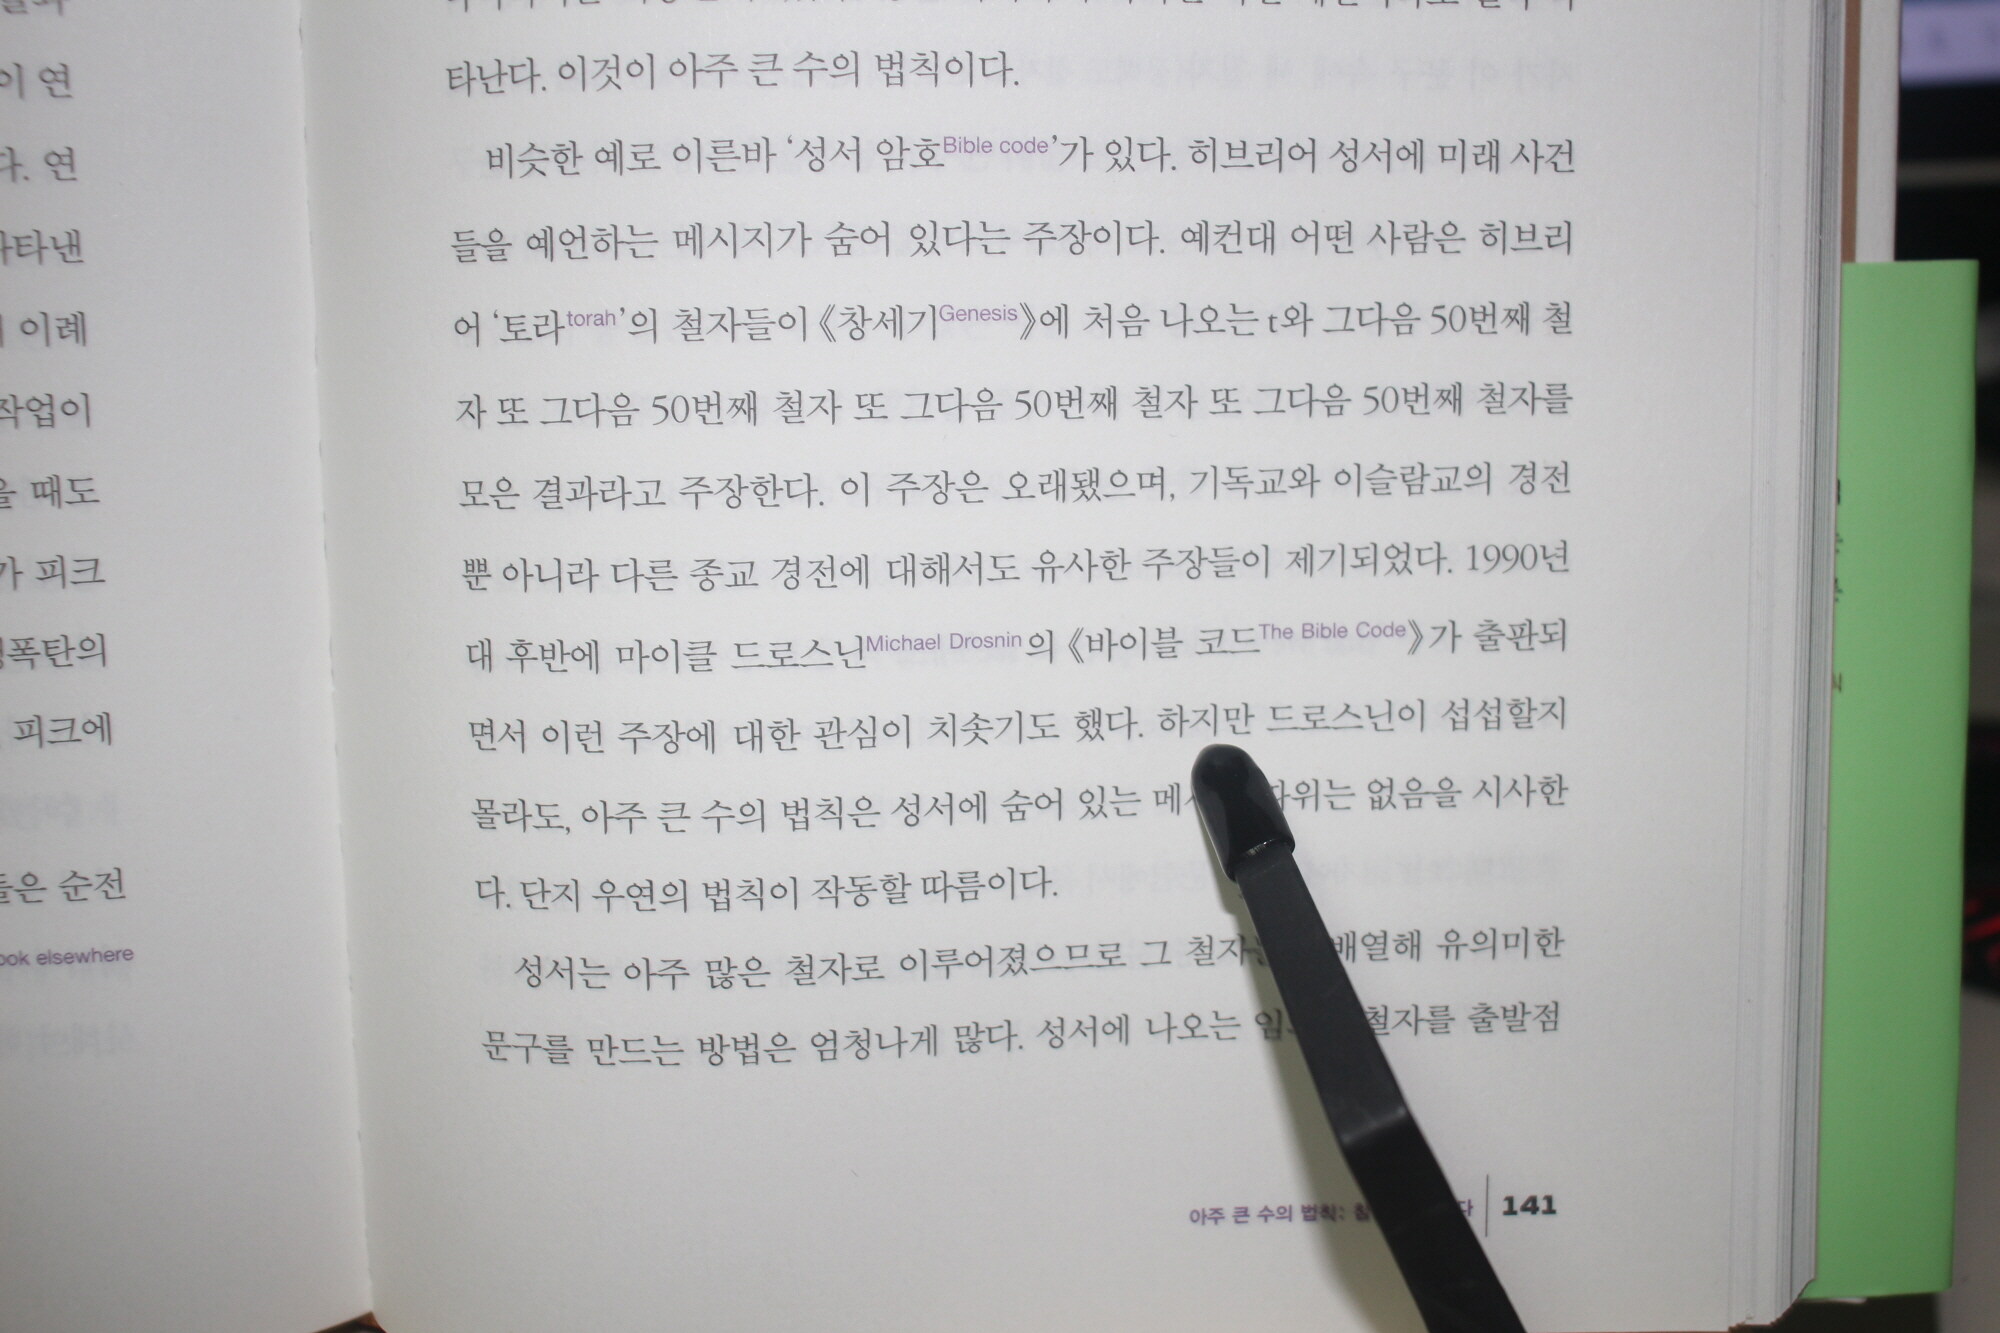 이 연
다. 연
타낸
이례
작업이
때도
가 피크
폭탄의
피크에
들은 순전
elsewhere
타난다. 이것이 아주 큰 수의 법칙이다.
비슷한 예로 이른바 ‘성서 암호Bible code’가 있다. 히브리어 성서에 미래 사건
들을 예언하는 메시지가 숨어 있다는 주장이다. 예컨대 어떤 사람은 히브리
어 ‘토라torah’의 철자들이 《창세기Genesis》에 처음 나오는 t와 그다음 50번째 철
자 또 그다음 50번째 철자 또 그다음 50번째 철자 또 그다음 50번째 철자를
모은 결과라고 주장한다. 이 주장은 오래됐으며, 기독교와 이슬람교의 경전
뿐 아니라 다른 종교 경전에 대해서도 유사한 주장들이 제기되었다. 1990년
대 후반에 마이클 드로스닌Michael Drosnin의 《바이블 코드The Bible Code》가 출판되
면서 이런 주장에 대한 관심이 치솟기도 했다. 하지만 드로스닌이 섭섭할지
몰라도, 아주 큰 수의 법칙은 성서에 숨어 있는 없음을 시사한
다. 단지 우연의 법칙이 작동할 따름이다.
성서는 아주 많은 철자로 이루어졌으므로 그 유의미한
문구를 만드는 방법은 엄청나게 많다. 성서에 나오는 철자를 출발점
아주 큰 수의 법칙: 141